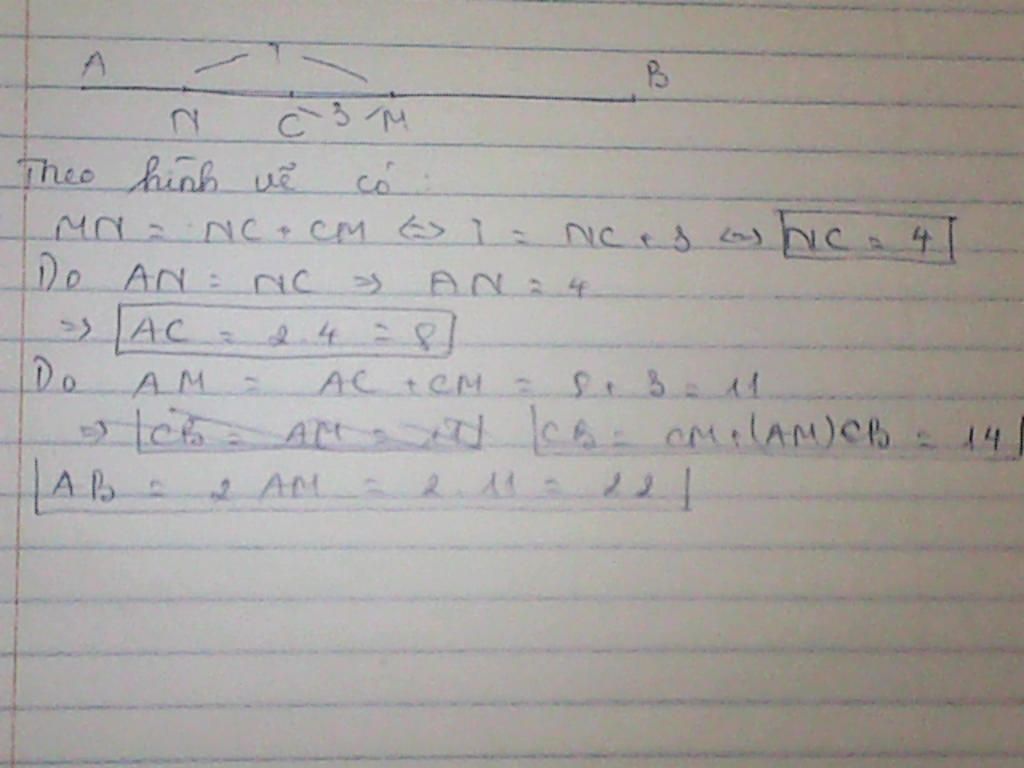 A 7 B
N C 3 M
Theo hình vẽ có :
MN = NC + CM <=> 7 = NC + 3 <=> NC = 4
Do AN = NC => AN = 4
=> AC = 2.4 = 8
Do AM = AC + CM = 8 + 3 = 11
=> CB = AM = CB = CM + (AM) CB = 14
AB = 2 AM = 2.11 = 22